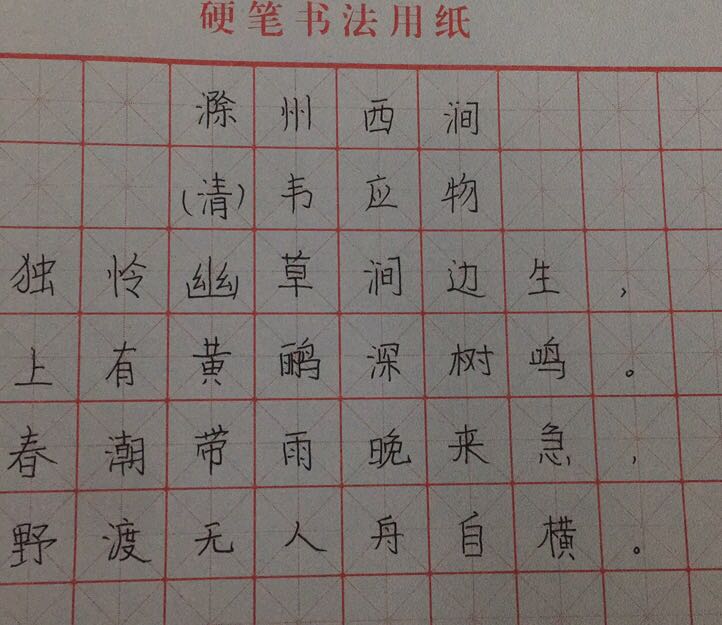 硬笔书法用纸
滁州西涧
(清)韦应物
独怜幽草涧边生,
上有黄鹂深树鸣。
春潮带雨晚来急,
野渡无人舟自横。